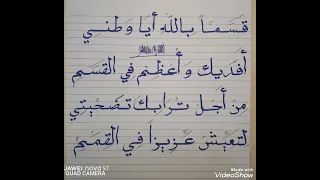 قَسَماً بِاللّهِ أيا وَطني
أفديك وَ أُعْظم في القَسَمِ
مِن أجل ترابك تضحيتي
لتعيش عَزيزاً في القمم
HUAWEI nova 5T
QUAD CAMERA
Made with
VideoShow